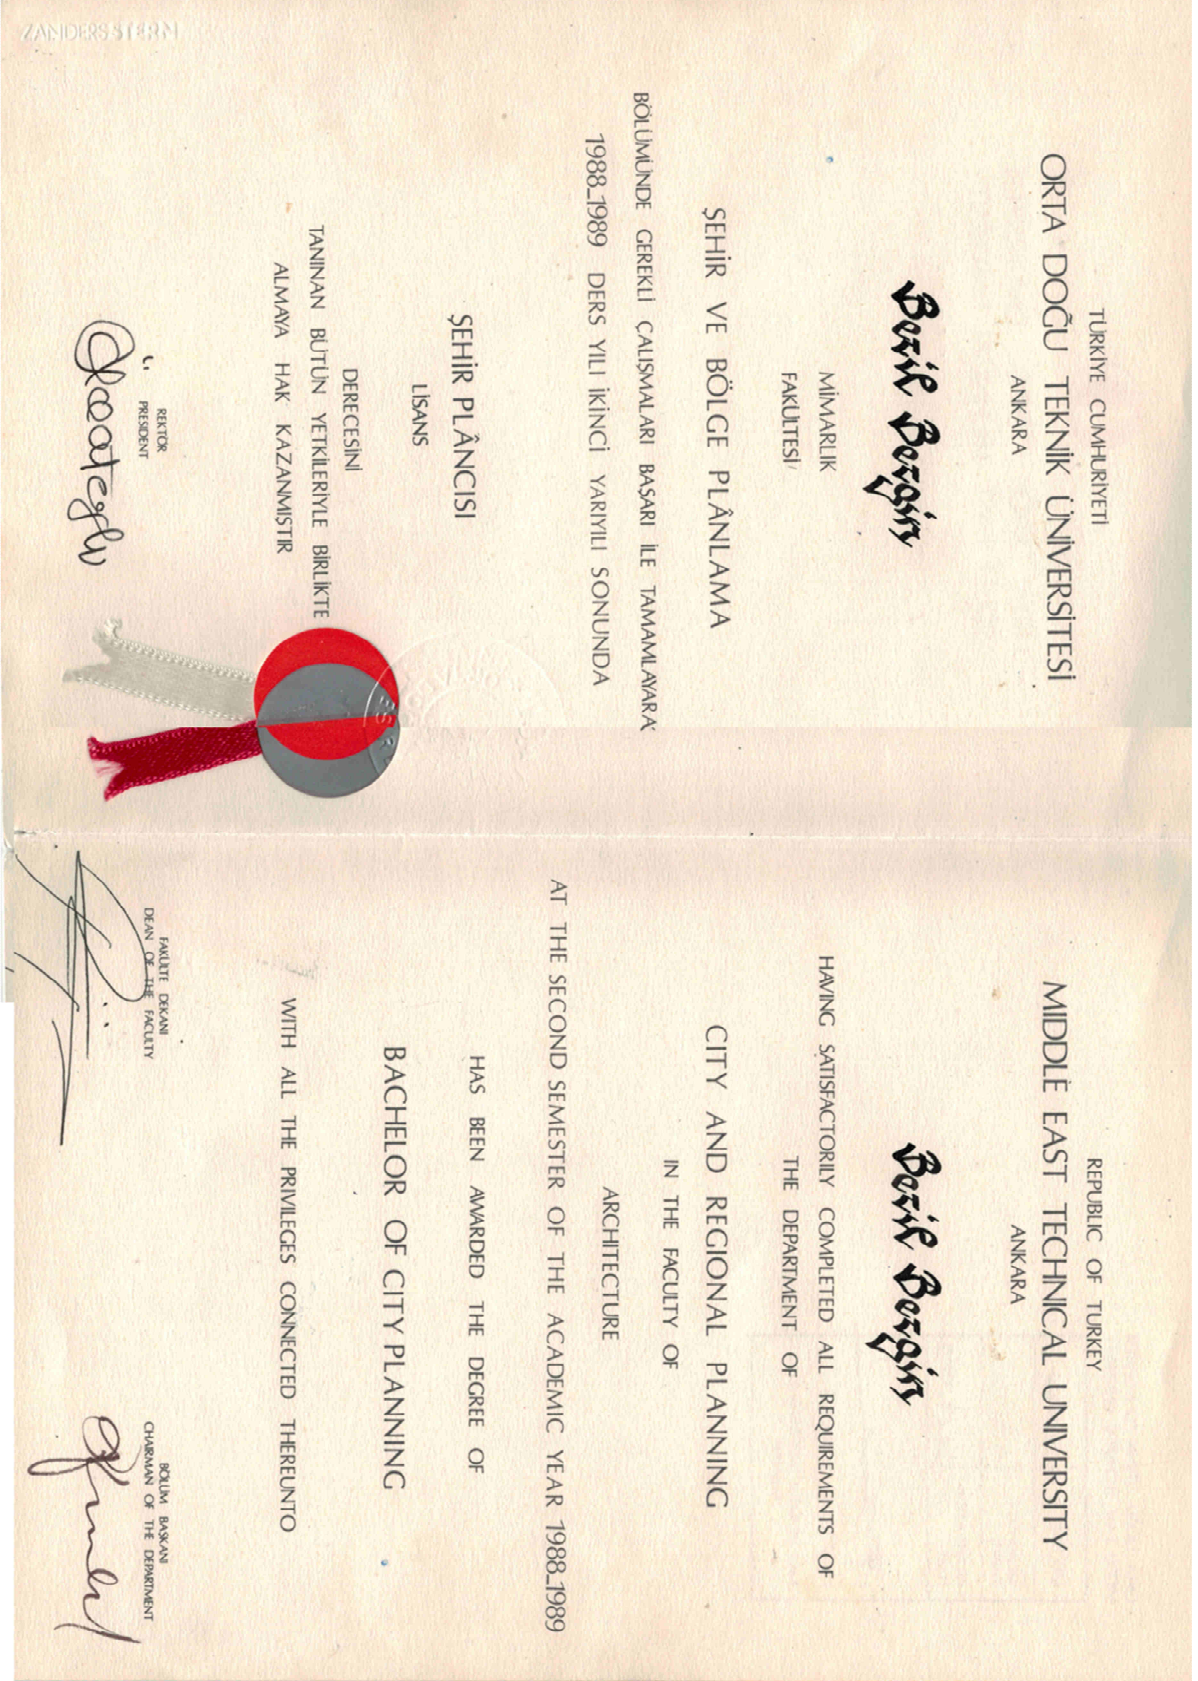 ZANDERS STERN
TÜRKİYE CUMHURİYETİ
ORTA DOĞU TEKNİK ÜNİVERSİTESİ
ANKARA
Bezik Bezgin
MİMARLIK
FAKÜLTESİ
ŞEHİR VE BÖLGE PLÂNLAMA
BÖLÜMÜNDE GEREKLİ ÇALIŞMALARI BAŞARI İLE TAMAMLAYARA
1988_1989 DERS YILI İKİNCİ YARIYILI SONUNDA
ŞEHİR PLÂNCISI
LİSANS
DERECESİNİ
TANINAN BÜTÜN YETKİLERİYLE BİRLİKTE
ALMAYA HAK KAZANMIŞTIR
REKTÖR
PRESIDENT
REPUBLIC OF TURKEY
MIDDLE EAST TECHNICAL UNIVERSITY
ANKARA
Bezik Bezgin
HAVING SATISFACTORILY COMPLETED ALL REQUIREMENTS OF
THE DEPARTMENT OF
CITY AND REGIONAL PLANNING
IN THE FACULTY OF
ARCHITECTURE
AT THE SECOND SEMESTER OF THE ACADEMIC YEAR 1988_1989
HAS BEEN AWARDED THE DEGREE OF
BACHELOR OF CITY PLANNING
WITH ALL THE PRIVILEGES CONNECTED THEREUNTO
FAKÜLTE DEKANI
DEAN OF THE FACULTY
BÖLÜM BAŞKANI
CHAIRMAN OF THE DEPARTMENT